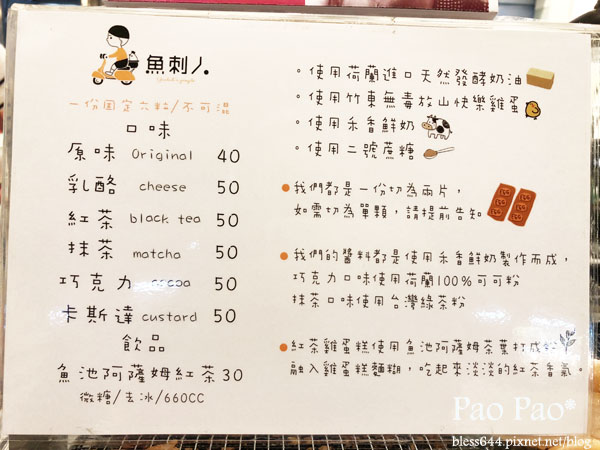 魚刺人
一份固定六粒/不可混
口味
原味 Original 40
乳酪 cheese 50
紅茶 black tea 50
抹茶 matcha 50
巧克力 cocoa 50
卡斯達 custard 50
飲品
魚池阿薩姆紅茶30
微糖/去冰/660CC
。使用荷蘭進口天然發酵奶油
。使用竹東無毒放山快樂雞蛋
。使用禾香鮮奶
。使用二號蔗糖
●我們都是一份切為兩片，
如需切為單顆，請提前告知
●我們的醬料都是使用禾香鮮奶製作而成，
巧克力口味使用荷蘭100%可可粉
抹茶口味使用台灣綠茶粉
●紅茶雞蛋糕使用魚池阿薩姆茶葉打成粉
融入雞蛋糕麵糊，吃起來淡淡的紅茶香氣。
Pao Pao*
bless644.pixnet.net/blog